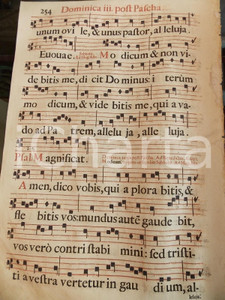 254 Dominica iii. post Pascha.
unum ovi le, & unus pastor, al leluja.
Euouae. M o dicum & non vi-
debitis me, dicit Dominus: i terùm
mo dicum, & vide bitis me, qui a va-
do ad Pa trem, allelu ja, alle luja.
Psal. M agnificat.
A men, dico vobis, qui a plora bitis, &
fle bitis vos: mundus autẽ gaude bit,
vos verò contri stabi mini: sed tristi-
ti a vestra vertetur in gau di um, al-
leluja.
Charta